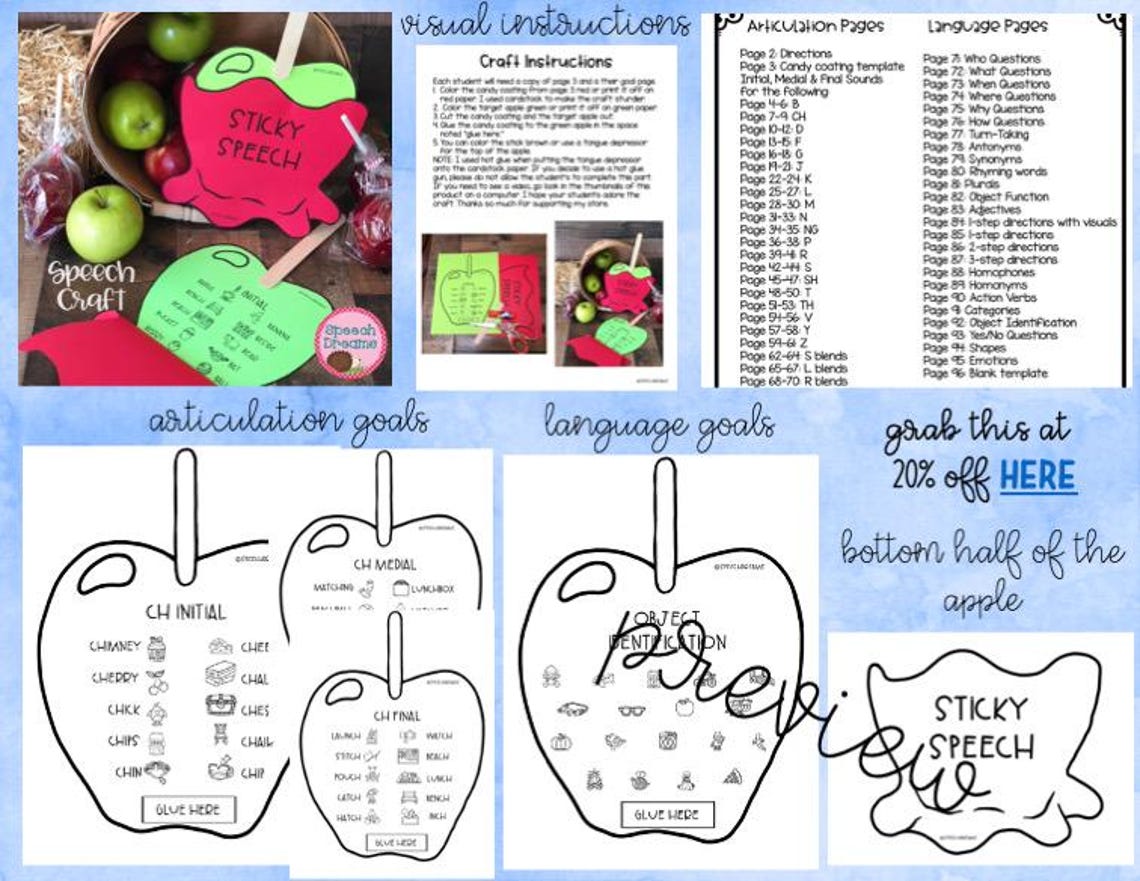 visual instructions
STICKY
SPEECH
Speech
Craft
INITIAL
Speech
Dreams
Craft Instructions
Each student will need a copy of page 3 and a their goal page.
1. Color the candy coating from page 3 red or print it off on
red paper. I used cardstock to make the craft sturdier.
2. Color the target apple green or print it off on green paper
3. Cut the candy coating and the target apple out.
4. Glue the candy coating to the green apple in the space
noted "glue here."
5. You can color the stick brown or use a tongue depressor
for the top of the apple.
NOTE: I used hot glue when putting the tongue depressor
onto the cardstock paper. If you decide to use a hot glue
gun, please do not allow the student's to complete this part.
If you need to see a video, go look in the thumbnails of this
product on a computer. I hope your students adore the
craft. Thanks so much for supporting my store.
Articulation Pages
Page 2: Directions
Page 3: Candy coating template
Initial, Medial & Final Sounds
for the following
Page 4-6: B
Page 7-9: CH
Page 10-12: D
Page 13-15: F
Page 16-18: G
Page 19-21: J
Page 22-24: K
Page 25-27: L
Page 28-30: M
Page 31-33: N
Page 34-35: NG
Page 36-38: P
Page 39-41: R
Page 42-44: S
Page 45-47: SH
Page 48-50: T
Page 51-53: TH
Page 54-56: V
Page 57-58: Y
Page 59-61: Z
Page 62-64: S blends
Page 65-67: L blends
Page 68-70: R blends
Language Pages
Page 71: Who Questions
Page 72: What Questions
Page 73: When Questions
Page 74: Where Questions
Page 75: Why Questions
Page 76: How Questions
Page 77: Turn-Taking
Page 78: Antonyms
Page 79: Synonyms
Page 80: Rhyming words
Page 81: Plurals
Page 82: Object Function
Page 83: Adjectives
Page 84: 1-step directions with visuals
Page 85: 1-step directions
Page 86: 2-step directions
Page 87: 3-step directions
Page 88: Homophones
Page 89: Homonyms
Page 90: Action Verbs
Page 91: Categories
Page 92: Object Identification
Page 93: Yes/No Questions
Page 94: Shapes
Page 95: Emotions
Page 96: Blank template
articulation goals
language goals
grab this at
20% off HERE
bottom half of the
apple
CH INITIAL
CHIMNEY CHEE
CHERRY CHAL
CHICK CHES
CHIPS CHAIR
CHIN CHIP
GLUE HERE
CH MEDIAL
MATCHING LUNCHBOX
CH FINAL
LAUNCH WATCH
STITCH BEACH
POUCH LUNCH
CATCH BENCH
HATCH INCH
GLUE HERE
OBJECT
IDENTIFICATION
GLUE HERE
preview
STICKY
SPEECH